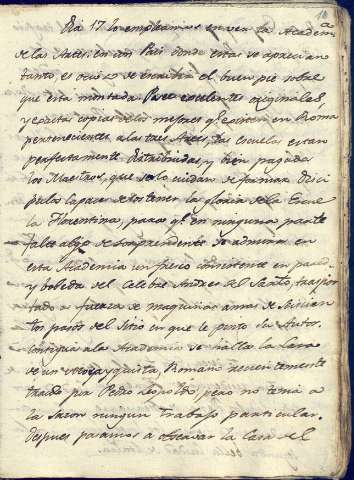 18
Dia 17 lo empleamos en ver la Academ^a
de las Artes: en un Pais donde estas se aprecian
tanto, es ocioso se encarezca el buen pie sobre
que esta montada. Posee excelentes originales,
y exactas copias de los mejores q^e existen en Roma
pertenecientes a las tres Artes, las Escuelas estan
perfectamente distribuidas, y bien pagados
los Maestros, que solo cuidan de formar Disci
pulos capaces de sostener la gloria de la Escue
la Florentina, para q^e en ninguna parte
falte algo de sorprendente se admira en
esta Academia un fresco consistente en pared
y bobeda del celebre Andres del Sarto, traspor
tado a fuerza de maquinas a mas de
tos pasos del Sitio en que le pinto su Autor.
Contigua a la Academia se halla la Casa
de un Romano recientemente
traido por Pedro Leopoldo, pero no tenia a
la sazon ningun trabajo particular.
despues pasamos a observar la Casa del